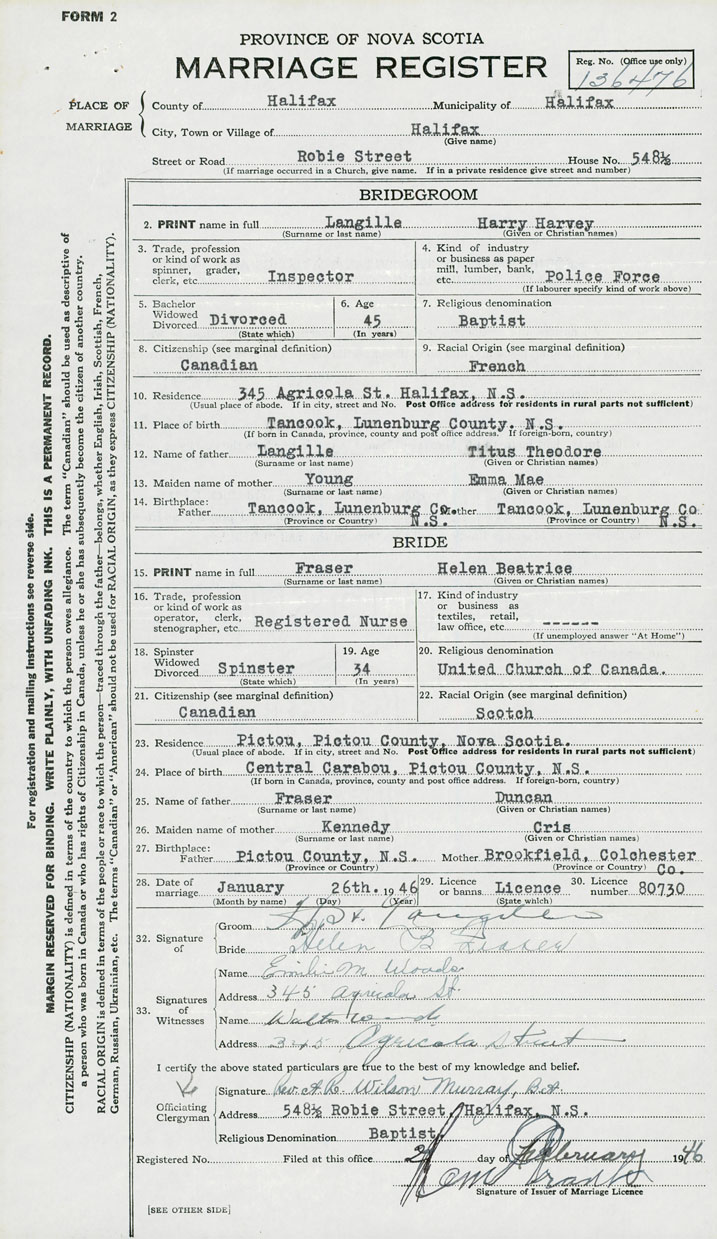 FORM 2
PROVINCE OF NOVA SCOTIA
MARRIAGE REGISTER
Reg. No. (Office use only)
136476
PLACE OF MARRIAGE
County of Halifax Municipality of Halifax
City, Town or Village of Halifax
(Give name)
Street or Road Robie Street House No. 548½
(If marriage occurred in a Church, give name. If in a private residence give street and number)
BRIDEGROOM
2. PRINT name in full Langille Harry Harvey
(Surname or last name) (Given or Christian names)
3. Trade, profession or kind of work as spinner, grader, clerk, etc. Inspector
4. Kind of industry or business as paper mill, lumber, bank, etc. Police Force
(If labourer specify kind of work above)
5. Bachelor Widowed Divorced Divorced
(State which)
6. Age 45
(In years)
7. Religious denomination
Baptist
8. Citizenship (see marginal definition)
Canadian
9. Racial Origin (see marginal definition)
French
10. Residence 345 Agricola St. Halifax, N.S.
(Usual place of abode. If in city, street and No. Post Office address for residents in rural parts not sufficient)
11. Place of birth Tancook, Lunenburg County. N.S.
(If born in Canada, province, county and post office address. If foreign-born, country)
12. Name of father Langille Titus Theodore
(Surname or last name) (Given or Christian names)
13. Maiden name of mother Young Emma Mae
(Surname or last name) (Given or Christian names)
14. Birthplace: Father Tancook, Lunenburg Co. N.S. Mother Tancook, Lunenburg Co N.S.
(Province or Country) (Province or Country)
BRIDE
15. PRINT name in full Fraser Helen Beatrice
(Surname or last name) (Given or Christian names)
16. Trade, profession or kind of work as operator, clerk, stenographer, etc. Registered Nurse
17. Kind of industry or business as textiles, retail, law office, etc. ------
(If unemployed answer "At Home")
18. Spinster Widowed Divorced Spinster
(State which)
19. Age 34
(In years)
20. Religious denomination
United Church of Canada.
21. Citizenship (see marginal definition)
Canadian
22. Racial Origin (see marginal definition)
Scotch
23. Residence Pictou, Pictou County, Nova Scotia.
(Usual place of abode. If in city, street and No. Post Office address for residents in rural parts not sufficient)
24. Place of birth Central Carabou, Pictou County, N.S.
(If born in Canada, province, county and post office address. If foreign-born, country)
25. Name of father Fraser Duncan
(Surname or last name) (Given or Christian names)
26. Maiden name of mother Kennedy Cris
(Surname or last name) (Given or Christian names)
27. Birthplace: Father Pictou County, N.S. Mother Brookfield, Colchester Co.
(Province or Country) (Province or Country)
28. Date of marriage January 26th. 1946
(Month by name) (Day) (Year)
29. Licence or banns Licence
(State which)
30. Licence number 80730
32. Signature of
Groom Langille
Bride Helen B Fraser
33. Signatures of Witnesses
Name Emilie M Woods
Address 345 Agricola St.
Name Walter Woods
Address 345 Agricola Street
I certify the above stated particulars are true to the best of my knowledge and belief.
Officiating Clergyman
Signature Rev. A. R. Wilson Murray, B.A.
Address 548½ Robie Street, Halifax, N.S.
Religious Denomination Baptist
Registered No. Filed at this office 2 day of February 1946
Signature of Issuer of Marriage Licence
[SEE OTHER SIDE]
For registration and mailing instructions see reverse side.
MARGIN RESERVED FOR BINDING. WRITE PLAINLY, WITH UNFADING INK. THIS IS A PERMANENT RECORD.
CITIZENSHIP (NATIONALITY) is defined in terms of the country to which the person owes allegiance. The term "Canadian" should be used as descriptive of
a person who was born in Canada or who has rights of Citizenship in Canada, unless he or she has subsequently become the citizen of another country.
RACIAL ORIGIN is defined in terms of the people or race to which the person—traced through the father—belongs, whether English, Irish, Scottish, French,
German, Russian, Ukrainian, etc. The terms "Canadian" or "American" should not be used for RACIAL ORIGIN, as they express CITIZENSHIP (NATIONALITY).